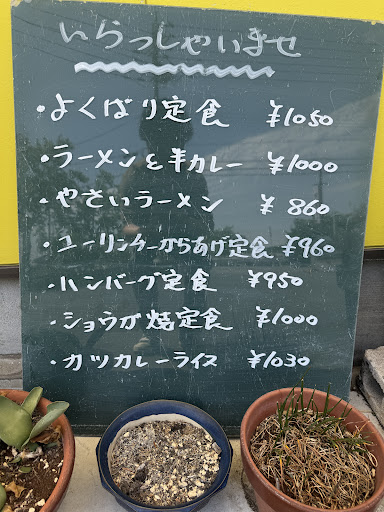 いらっしゃいませ
・よくばり定食 ¥1050
・ラーメンと半カレー ¥1000
・やさいラーメン ¥860
・ユーリンチーからあげ定食 ¥960
・ハンバーグ定食 ¥950
・ショウガ焼定食 ¥1000
・カツカレーライス ¥1030